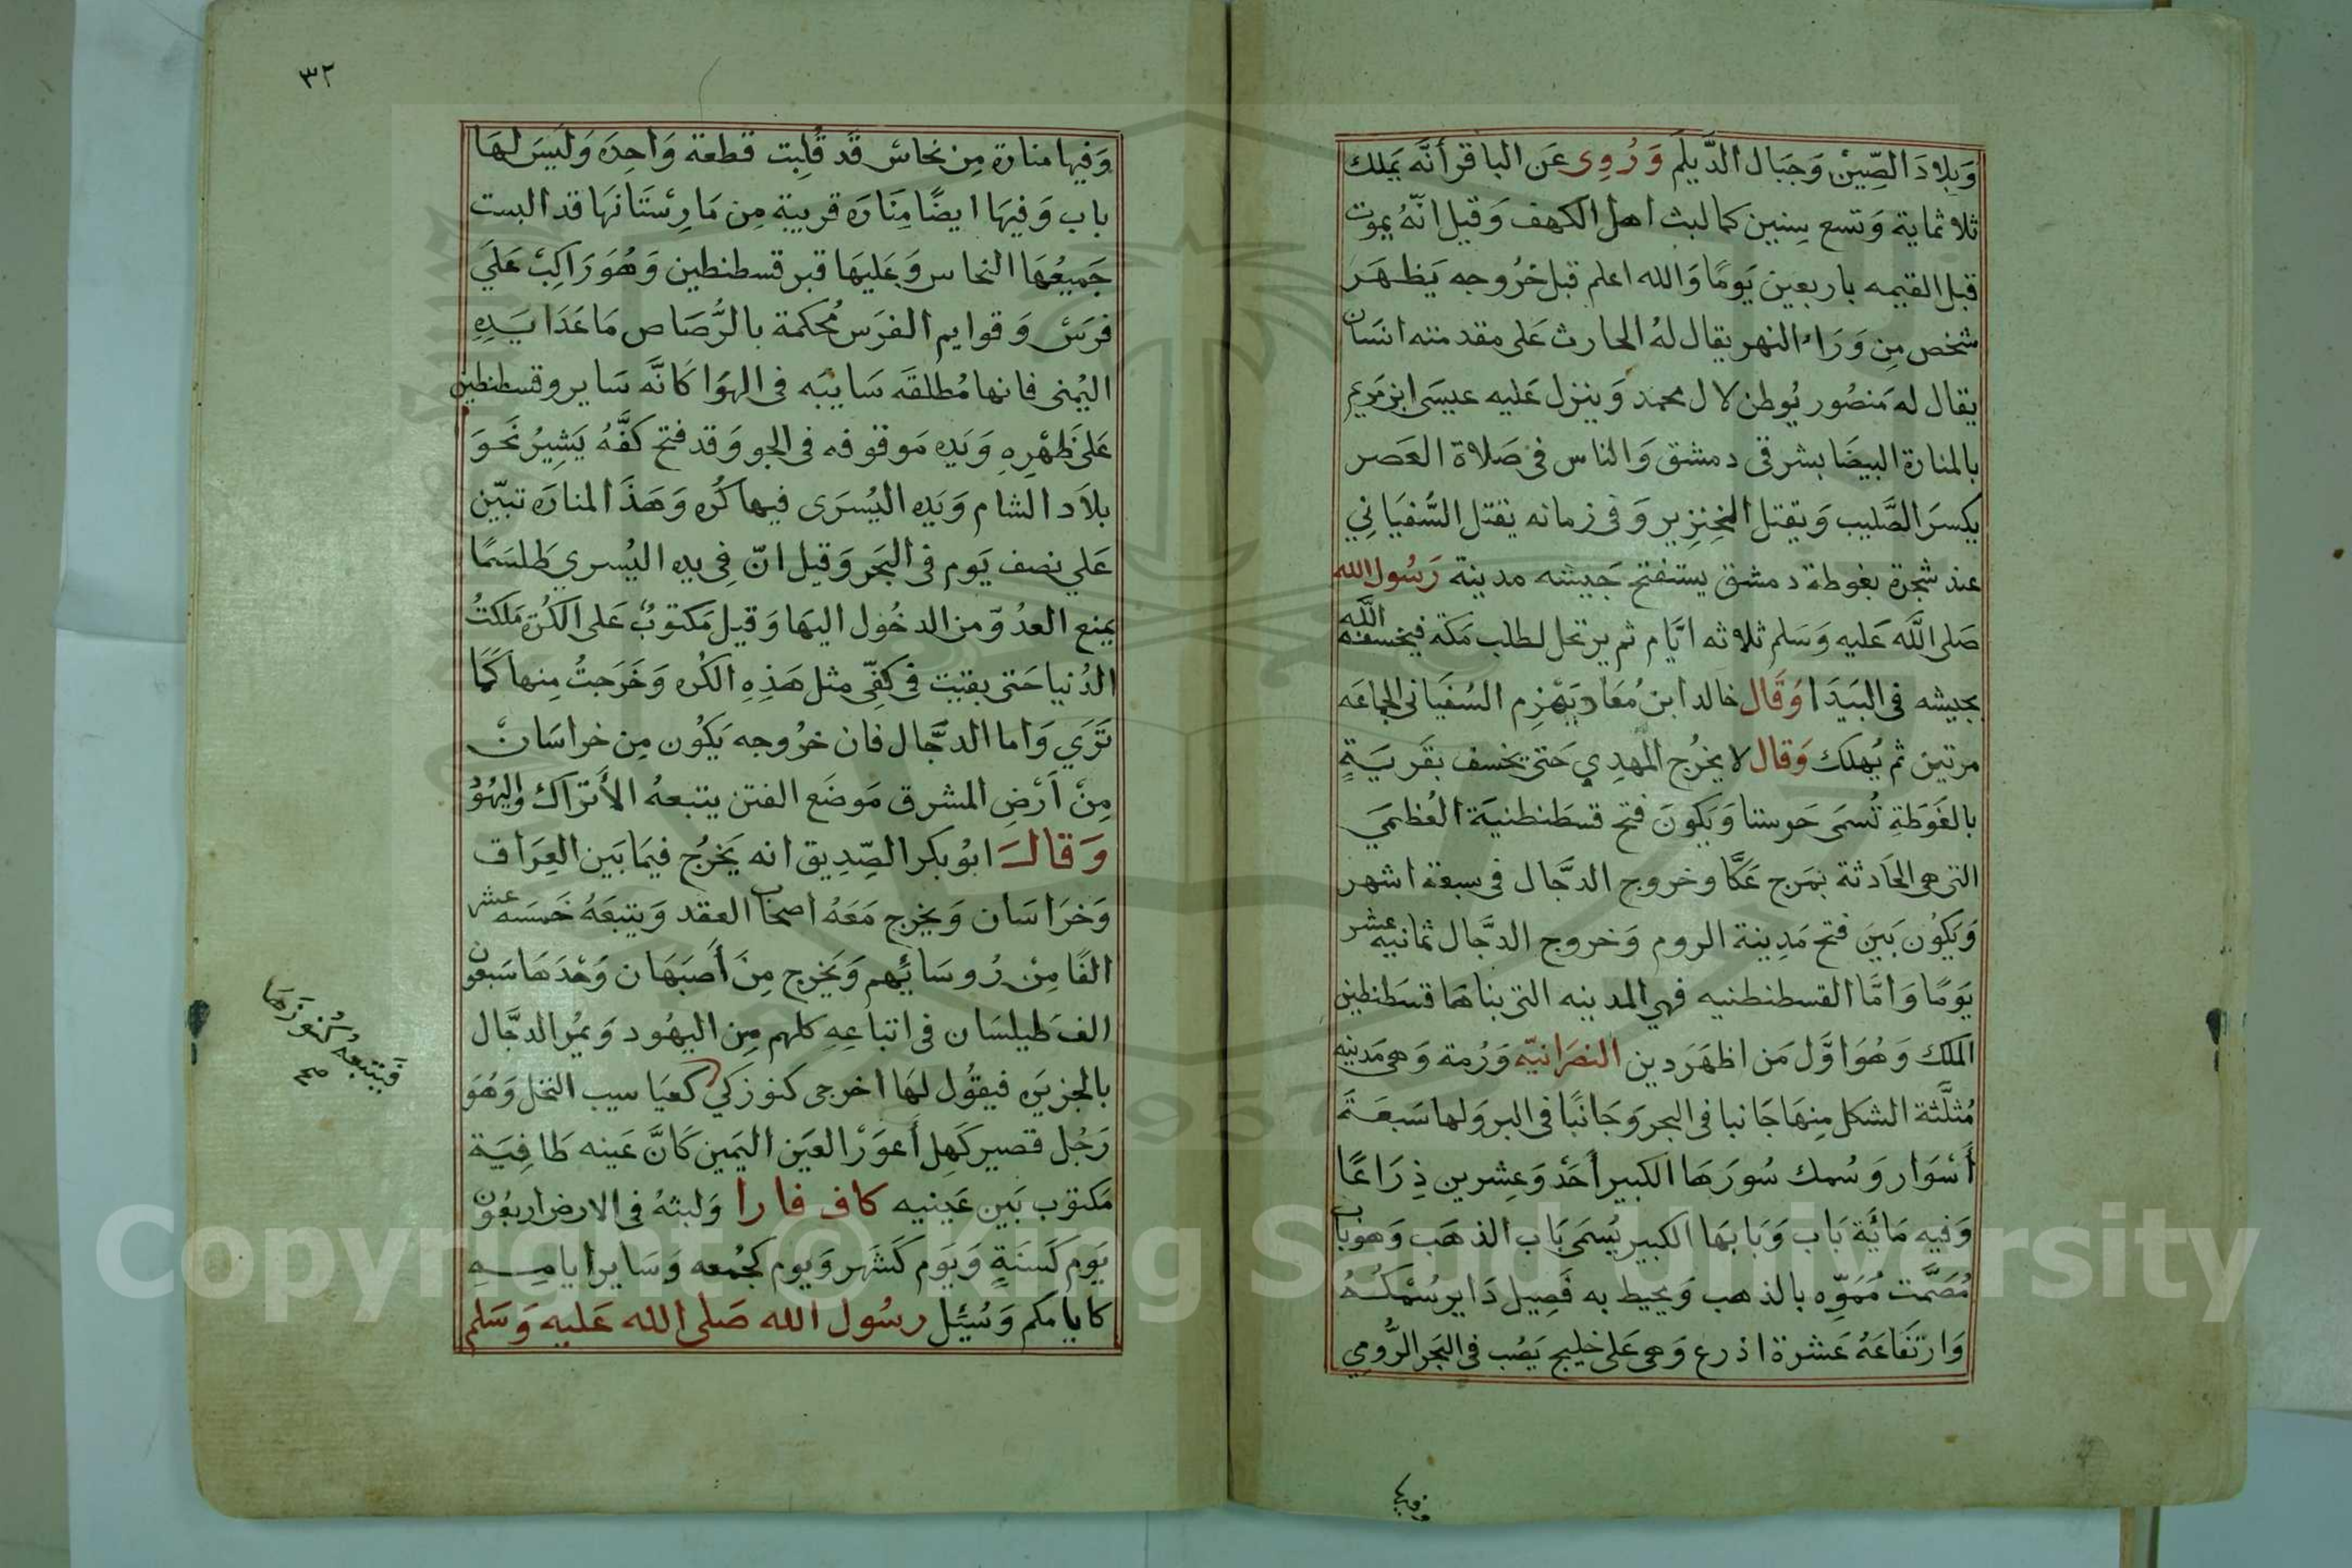 وَبِلادَ الصِّينْ وَجَبَال الدَّيلَم وَرُوِى عَن الباقر أنَّه يَملك
ثلاثماية وَتسع سِنين كما لبث اهل الكهف وَقيل انّهُ يموت
قبل القيمه باربعين يَومًا وَالله اعلم قبل خرُوجه يَظهَر
شخص مِن وَرَاء النهر يقال لهُ الحارث عَلى مقدمته انسَان
يقال له مَنصُور يُوطن لال محمد وَينزل عَليه عيسَى ابن مَريم
بالمنارة البيضَا بشرقى دمشق وَالناس فى صَلاة العَصر
يكسرَ الصَّليب وَيقتل الخِنزِير وَفى زمانه يقتل السُّفيَانِي
عند شجرة بغوطة دمشق يستفتح جَيشه مدينة رَسُول الله
صَلى اللَّه عَليه وَسَلم ثلاثه ايَّام ثم يرتحل لطلب مَكة فيخسف الله
بجيشه فى البَيدَا وَقَال خالد ابن مُعَاد يَهْزِم السُفيَانى الجماعَه
مرتين ثم يُهلك وَقال لا يخرُج المَهدِي حَتى يخسف بقَريَةٍ
بالغَوَطَةِ تُسمَى حَرستا وَيَكونَ فتح قسطَنطنيَة العُظمَي
التى هى الحَادثة بمَرج عَكَّا وخروج الدَّجَّال فى سبعة اشهر
وَيَكُون بَينَ فتح مَدِينة الروم وَخروج الدَّجَّال ثمانيه عشر
يَومًا وَامَّا القسطنطنيه فهي المدينه التى بناهَا قسَطنطين
الملك وَهُوَ اوَّل مَن اظهَرَ دين النصَرَانيّه وَرُمة وَهى مَدنيه
مُثلَّثة الشكل مِنهَا جَانبا فى البحر وَجَانبًا فى البر وَلها سَبعَة
أسْوَار وَسُمك سُورَهَا الكبير أحَدْ وَعِشرين ذِرَاعًا
وَفيه مَايَة بَاب وَبَابَها الكبير يُسَمى بَاب الذهَب وَهو باب
مُصَمَّت مُمَوِّه بالذهب وَيحيط به فَصِيل دَاير سُمْكهُ
وَارتفَاعَهُ عَشرة اذرع وَهى عَلى خليج يَصُب فى البَحر الرُّومي
وفيها
٣٢
وَفيها منارة مِن نحاسْ قَد قُلِبت قطعة وَاحِدَه وَليسَ لهَا
باب وَفيهَا ايضًا مِنَارَه قريبة مِن مَارِسْتَانهَا قد البست
جَميعُهَا النحاس وَعَليهَا قبر قسطنطين وَهُوَ رَاكِبْ عَليَ
فرَسْ وَقوايم الفرَس مُحكمة بالرُّصَاص مَا عَدَا يَدِهِ
اليُمنى فانها مُطلقَه سَايبَه فى الهوَا كَانَّه سَاير وقسطنطين
عَلى ظَهْرِهِ وَيَده مَوقوفه فى الجو وَقد فتح كفَّهُ يَشِيرُ نَحوَ
بلاَد الشام وَيَده اليُسرَى فيها كُره وَهَذَ المنارَه تبيّن
عَلي نصف يَوم فى البَحر وَقيل انّ فِى يده اليُسري طَلسَمًا
يمنع العدُوّ من الدخُول اليهَا وَقيل مَكتوبٌ عَلى الكُرَه مَلكتُ
الدُنيا حَتى بقيت فى كفِّى مثل هَذِهِ الكُره وَخَرَجتُ مِنها كَمَا
تَرَي وَاما الدجَّال فان خرُوجه يَكُون مِن خراسَانْ
مِنْ اَرْضِ المشرق مَوضَع الفتن يتبعهُ الأترَاك وَاليهُوُ
وَقالَ ابوُ بكر الصِّدِيق انه يَخرُج فيَما بَين العِرَاق
وَخرَاسَان وَيخرج مَعَهُ اصحاب العقد وَيتبَعَهُ خَمسَه عشر
الفًا مِنْ رُوسَائِهم وَيَخرج مِنَ أَصبَهَان وَحْدَهَا سَبعون
الف طيلسَان فى اتبَاعِهِ كلهم مِن اليهُود وَيمُر الدجَّال
بالجزيَره فيقُول لهَا اخرجى كنوزكي كعيَاسيب النخل وَهُوَ
فَيتبعهُ كُنُوزَهَا
صح
رَجُل قصير كَهِل أَعوَرْ العَيَن اليَمين كَانَّ عَينه طَافِيَة
مَكتوب بَين عَينيه كاف فا را وَلبثهُ فى الارض اربعُون
يَوم كَسَنَةٍ وَيَوَم كَشَهَر وَيوم كجُمعه وَسَاير ايامِهِ
كايامكم وَسُيئل رسُول الله صَلى الله عَليه وَسَلم
Copyright © King Saud University
1957